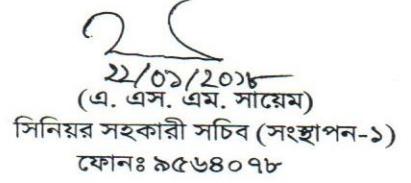 ২২/০১/২০১৮
(এ. এস. এম. সায়েম)
সিনিয়র সহকারী সচিব (সংস্থাপন-১)
ফোনঃ ৯৫৬৪০৭৮